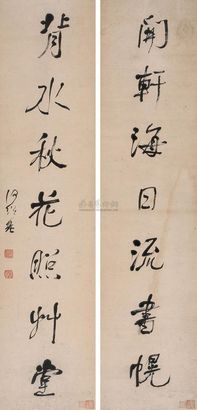 開軒海日流書幌
背水秋花照艸堂
何紹基